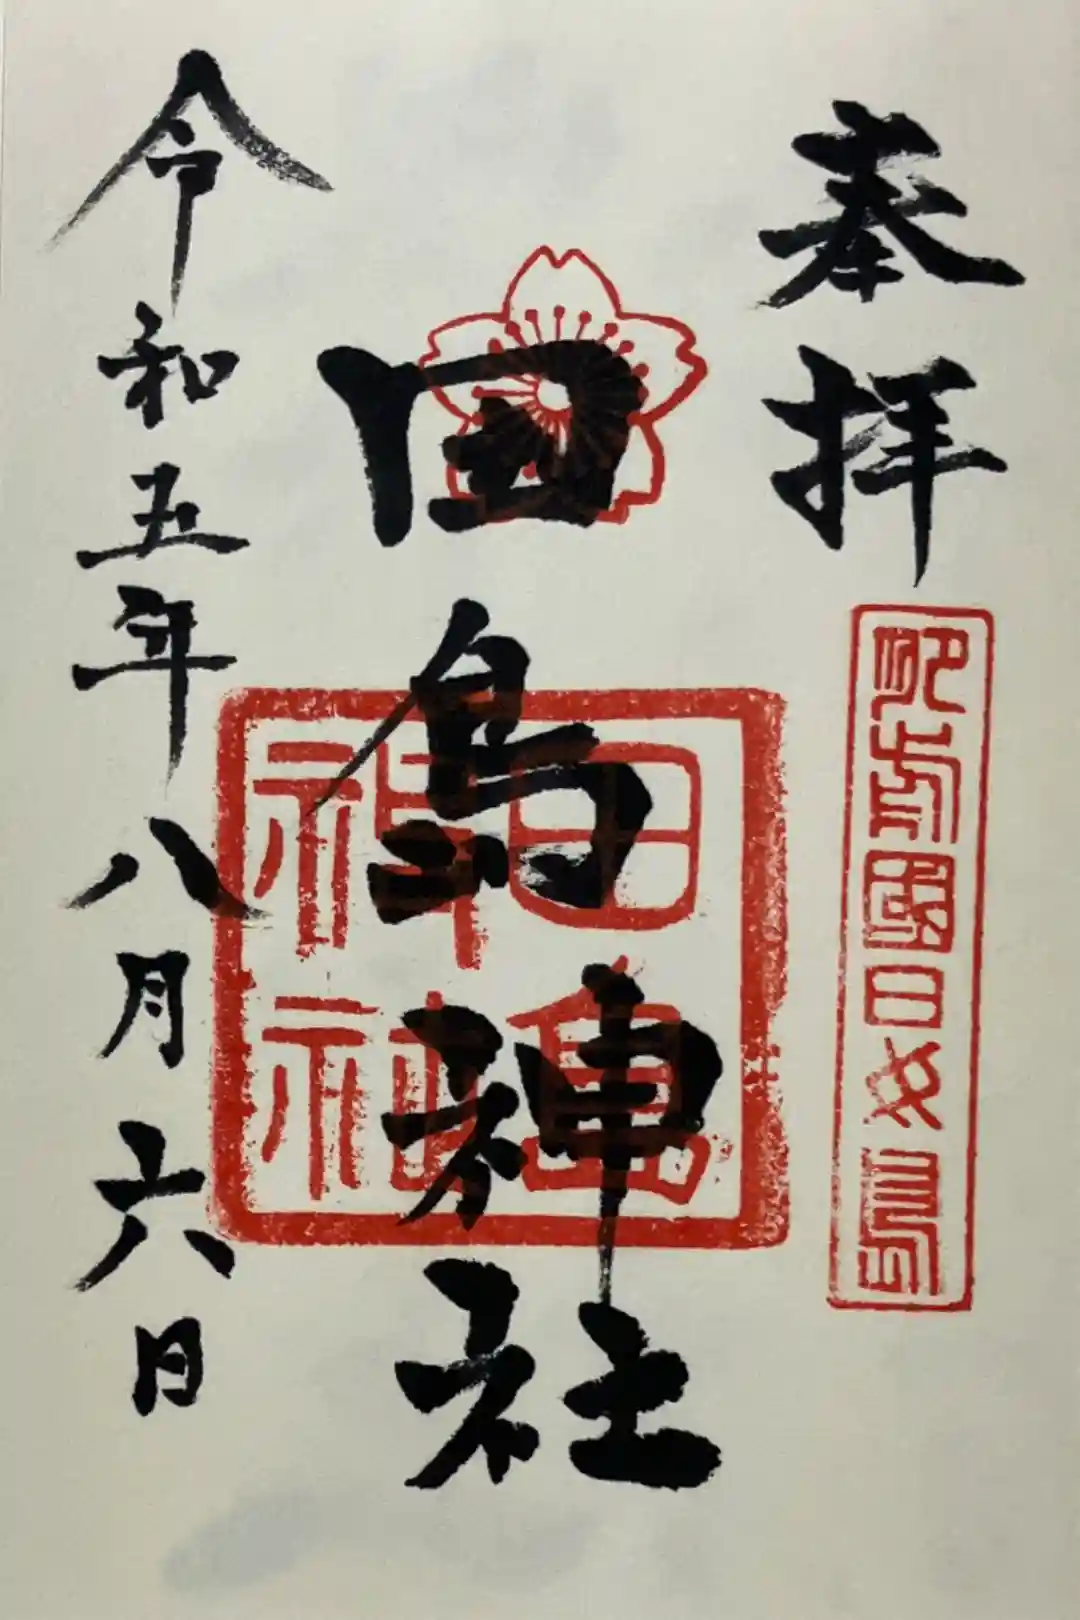 奉拝
肥前國日の守
田島神社
田島神社
令和五年八月六日